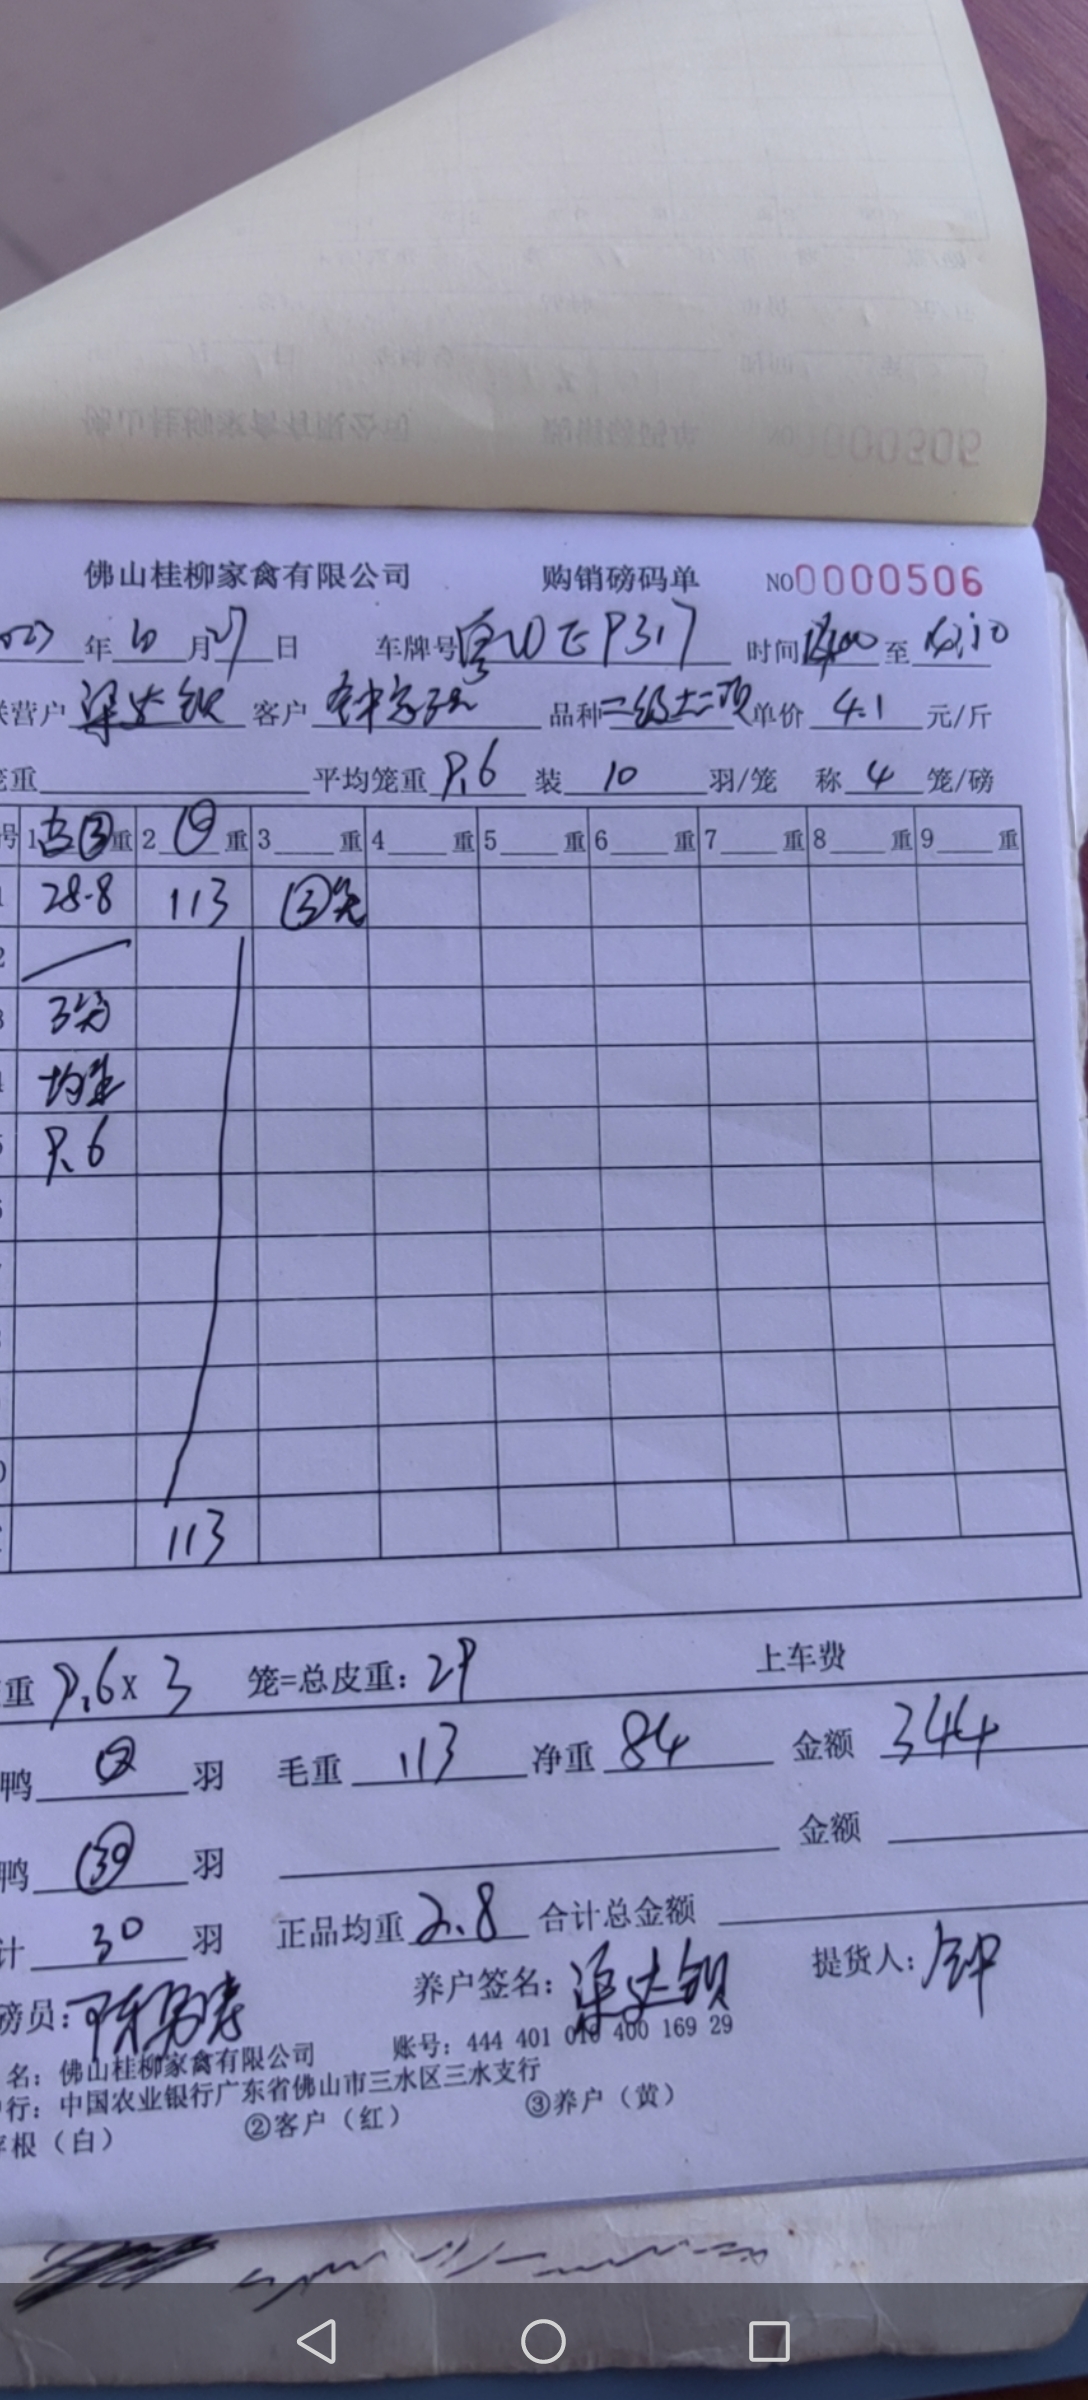 佛山桂柳家禽有限公司 购销磅码单 NO0000506
年 10 月 27 日 车牌号 粤WE9317 时间 至
营户 梁达钡 客户 品种 单价 4.1 元/斤
重 平均笼重 9.6 装 10 羽/笼 称 4 笼/磅
号 1 ③ 重 2 重 3 重 4 重 5 重 6 重 7 重 8 重 9 重
1 28.8 113 ③笼
2
3 3笼
4 均重
5 9.6
113
重 9.6 x 3 笼=总皮重: 29 上车费
鸭 羽 毛重 113 净重 84 金额 344
鸭 30 羽 金额
计 30 羽 正品均重 2.8 合计总金额
磅员: 养户签名: 梁达钡 提货人: 钟
名: 佛山桂柳家禽有限公司 账号: 444 401 010 400 169 29
行: 中国农业银行广东省佛山市三水区三水支行
根（白） ②客户（红） ③养户（黄）